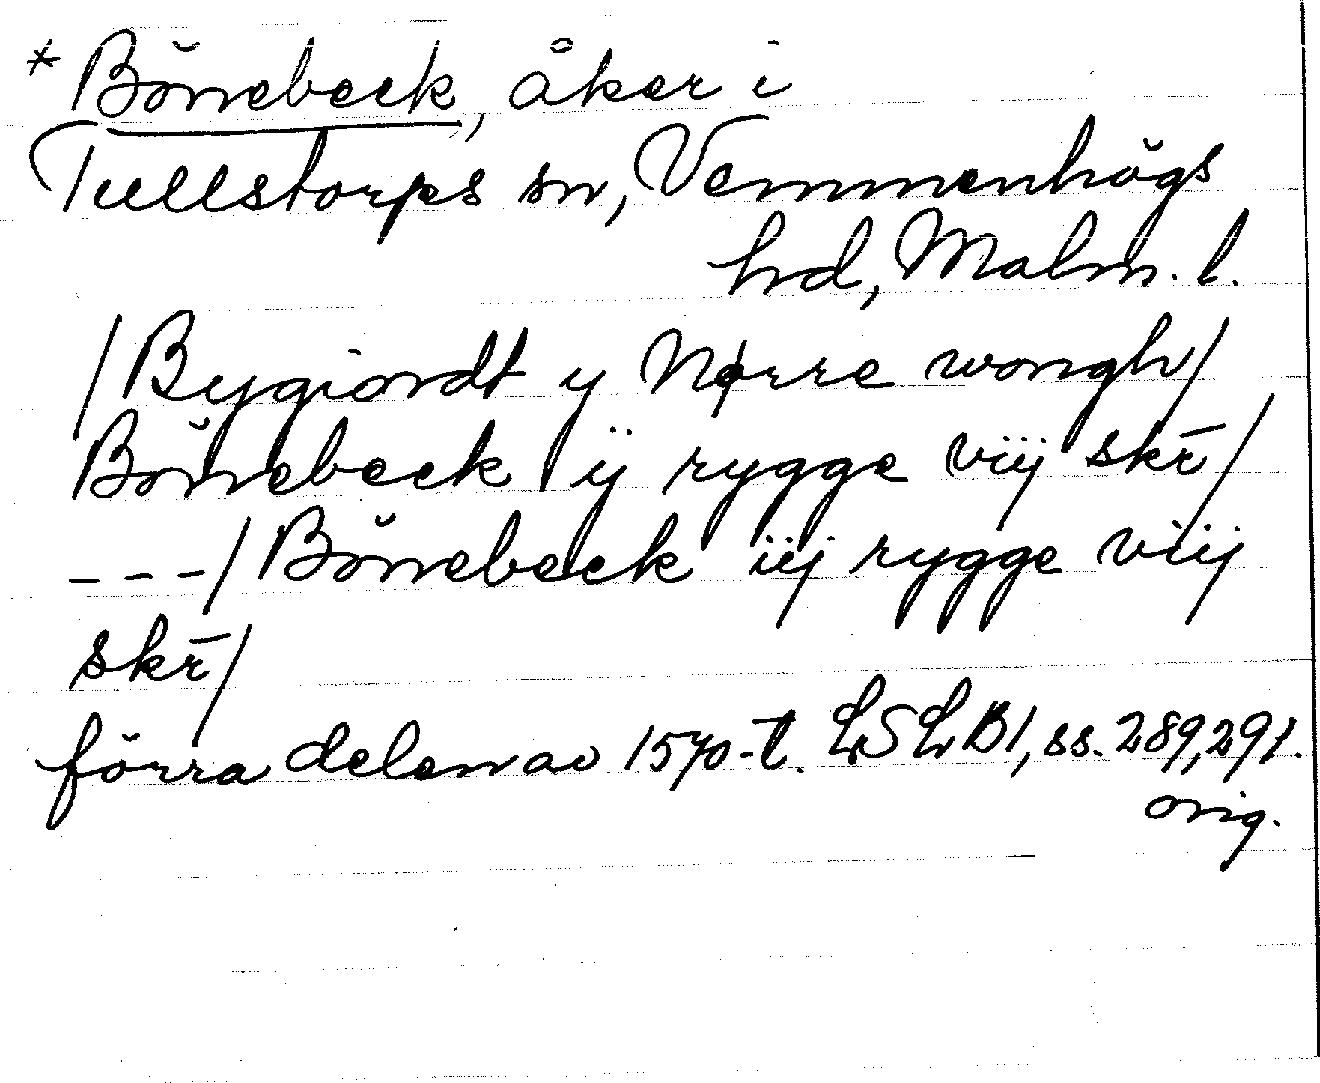 * Bönebeck, åker i
Tullstorps sn, Vemmenhögs
hd, Malm. l.
/Bygiordt y Nørre wongh/
Bönebeck / ij rygge viij skr̄/
- - - / Bönebeck iij rygge viij
skr̄/
förra delen av 1570-t. LSLB1, ss. 289, 291.
orig.